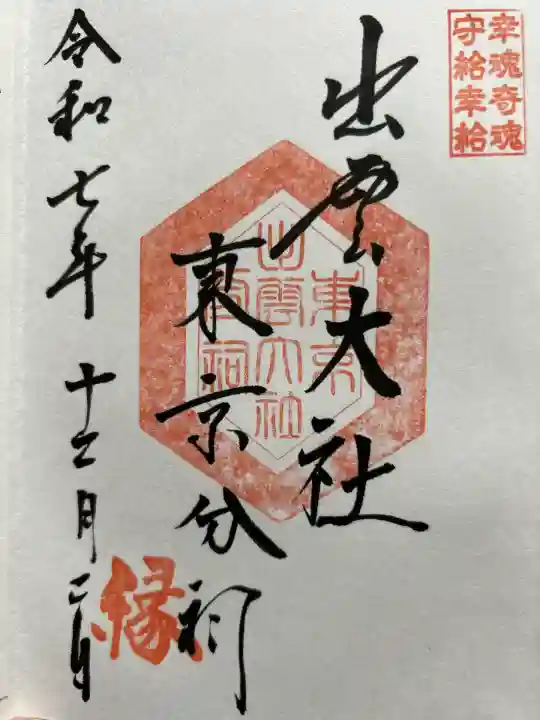 幸魂奇魂
守給幸給
出雲大社
東京分祠
東京
出雲大社
分祠
縁
令和七年十二月二日